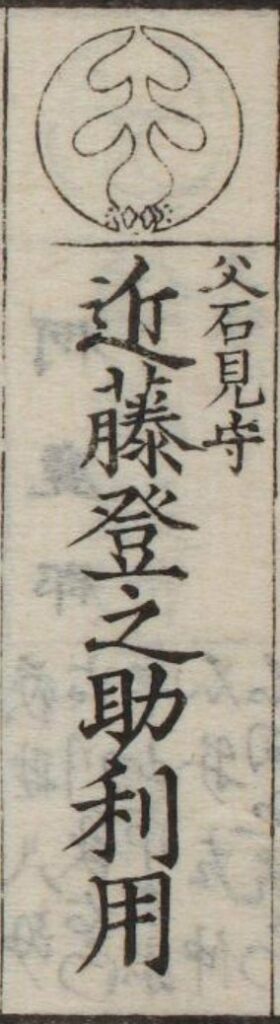 父石見守
近藤登之助利用